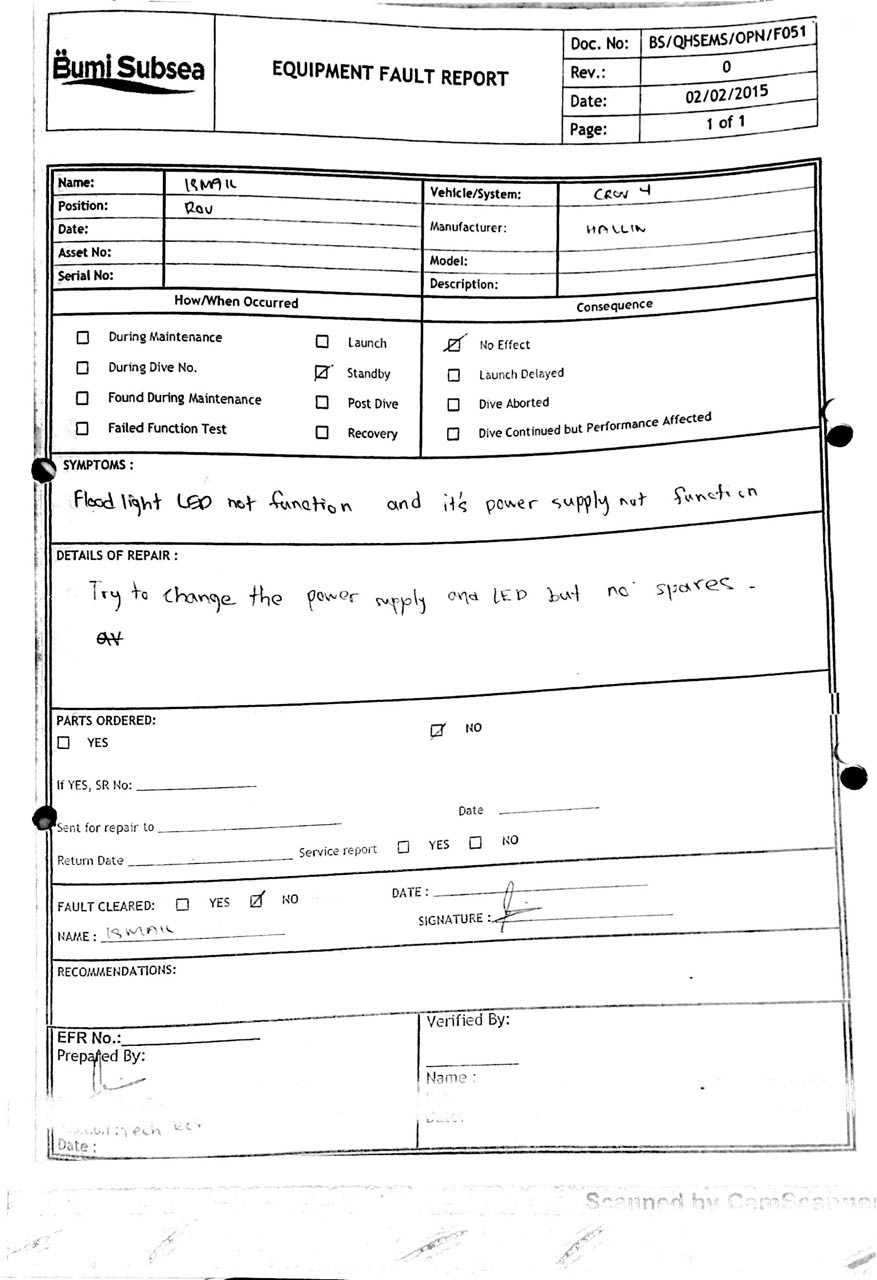 Bumi Subsea
EQUIPMENT FAULT REPORT
Doc. No: BS/QHSEMS/OPN/F051
Rev.: 0
Date: 02/02/2015
Page: 1 of 1
Name: ISMAIL
Position: ROV
Date:
Asset No:
Serial No:
Vehicle/System: CROV 4
Manufacturer: HALLIN
Model:
Description:
How/When Occurred
During Maintenance
During Dive No.
Found During Maintenance
Failed Function Test
Launch
Standby
Post Dive
Recovery
Consequence
No Effect
Launch Delayed
Dive Aborted
Dive Continued but Performance Affected
SYMPTOMS :
Flood light LED not function and it's power supply not function
DETAILS OF REPAIR :
Try to change the power supply and LED but no spares.
PARTS ORDERED:
YES NO
If YES, SR No:
Sent for repair to Date
Return Date Service report YES NO
FAULT CLEARED: YES NO DATE :
NAME : ISMAIL SIGNATURE :
RECOMMENDATIONS:
EFR No.:
Prepared By:
Date :
Verified By:
Name :
Date:
Scanned by CamScanner